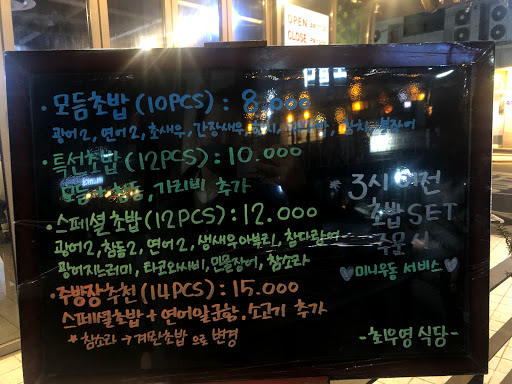 OPEN
CLOSE
• 모듬초밥 (10PCS) : 8.000
광어2, 연어2, 초새우, 간장새우,
• 특선초밥 (12PCS) : 10.000
참돔, 가리비 추가
• 스페셜초밥 (12PCS) : 12.000
광어2, 참돔2, 연어2, 생새우아보카도, 참다랑어
광어지느러미, 타코와사비, 민물장어, 참소라
• 주방장추천 (14PCS) : 15.000
스페셜초밥 + 연어알군함, 소고기 추가
* 참소라 → 계란초밥 으로 변경
3시 이전
초밥 SET
주문 시
♥ 미니우동 서비스 ♥
- 최우영 식당 -